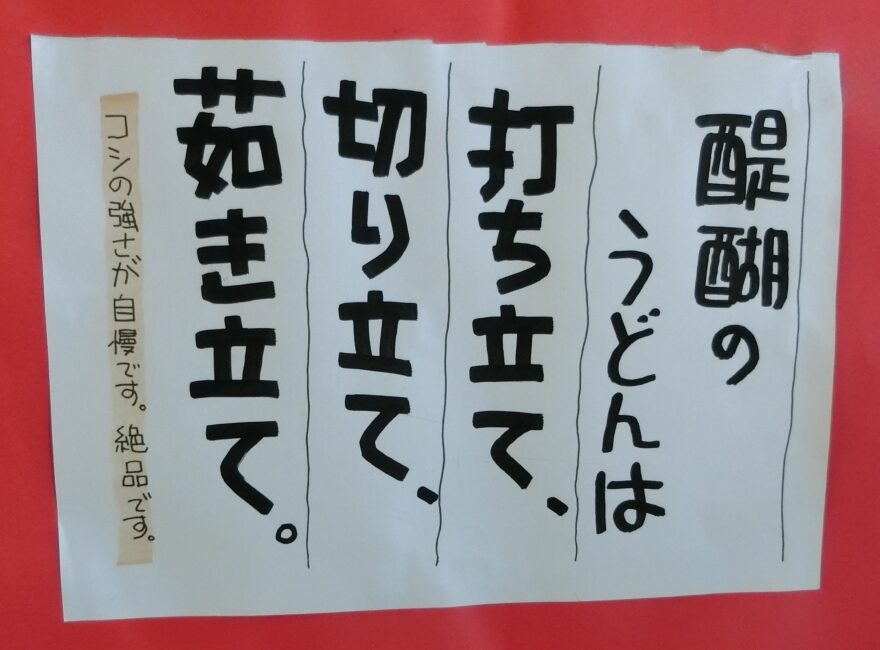 醍醐の
うどんは
打ち立て、
切り立て、
茹き立て。
コシの強さが自慢です。絶品です。